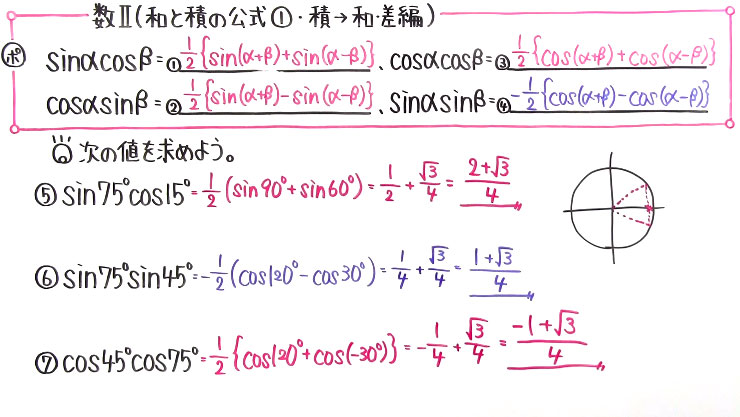 数Ⅱ(和と積の公式①・積→和・差編)
ポ sinαcosβ=①1/2{sin(α+β)+sin(α-β)}、cosαcosβ=③1/2{cos(α+β)+cos(α-β)}
cosαsinβ=②1/2{sin(α+β)-sin(α-β)}、sinαsinβ=④-1/2{cos(α+β)-cos(α-β)}
次の値を求めよう。
⑤sin75°cos15°=1/2(sin90°+sin60°)=1/2+√3/4=2+√3/4
⑥sin75°sin45°=-1/2(cos120°-cos30°)=1/4+√3/4=1+√3/4
⑦cos45°cos75°=1/2{cos120°+cos(-30°)}=-1/4+√3/4=-1+√3/4